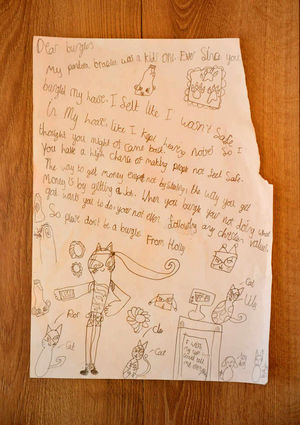 Dear burglar
My pandora bracelet was a kids one. Ever since you
burgled my house, I felt like I wasn't safe
in my house like I kept hearing noises so I
thought you might of came back.
You have a high chance of making people not feel safe.
The way to get money except not by stealing, the way you get
money is by getting a job. When you burgle your not doing what
god wants you to do, your not even following any christian values.
So please don't be a burglar From Holly
Cat
Lily
Cat
Cat
I wish
my cat
could tell
me